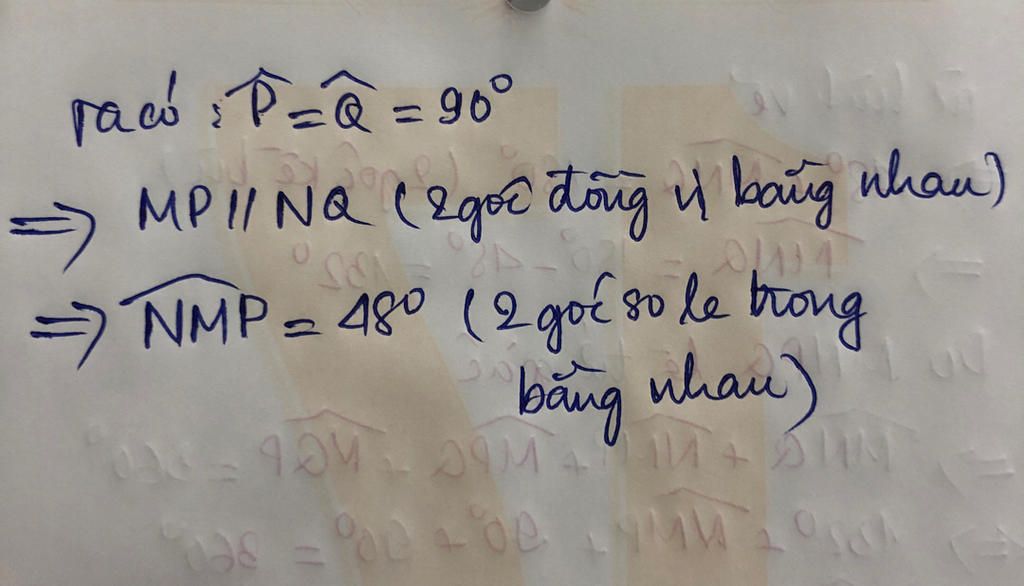 Ta có : P̂ = Q̂ = 90°
=> MP // NQ (2 góc đồng vị bằng nhau)
=> \widehat{NMP} = 48° (2 góc so le trong
bằng nhau)